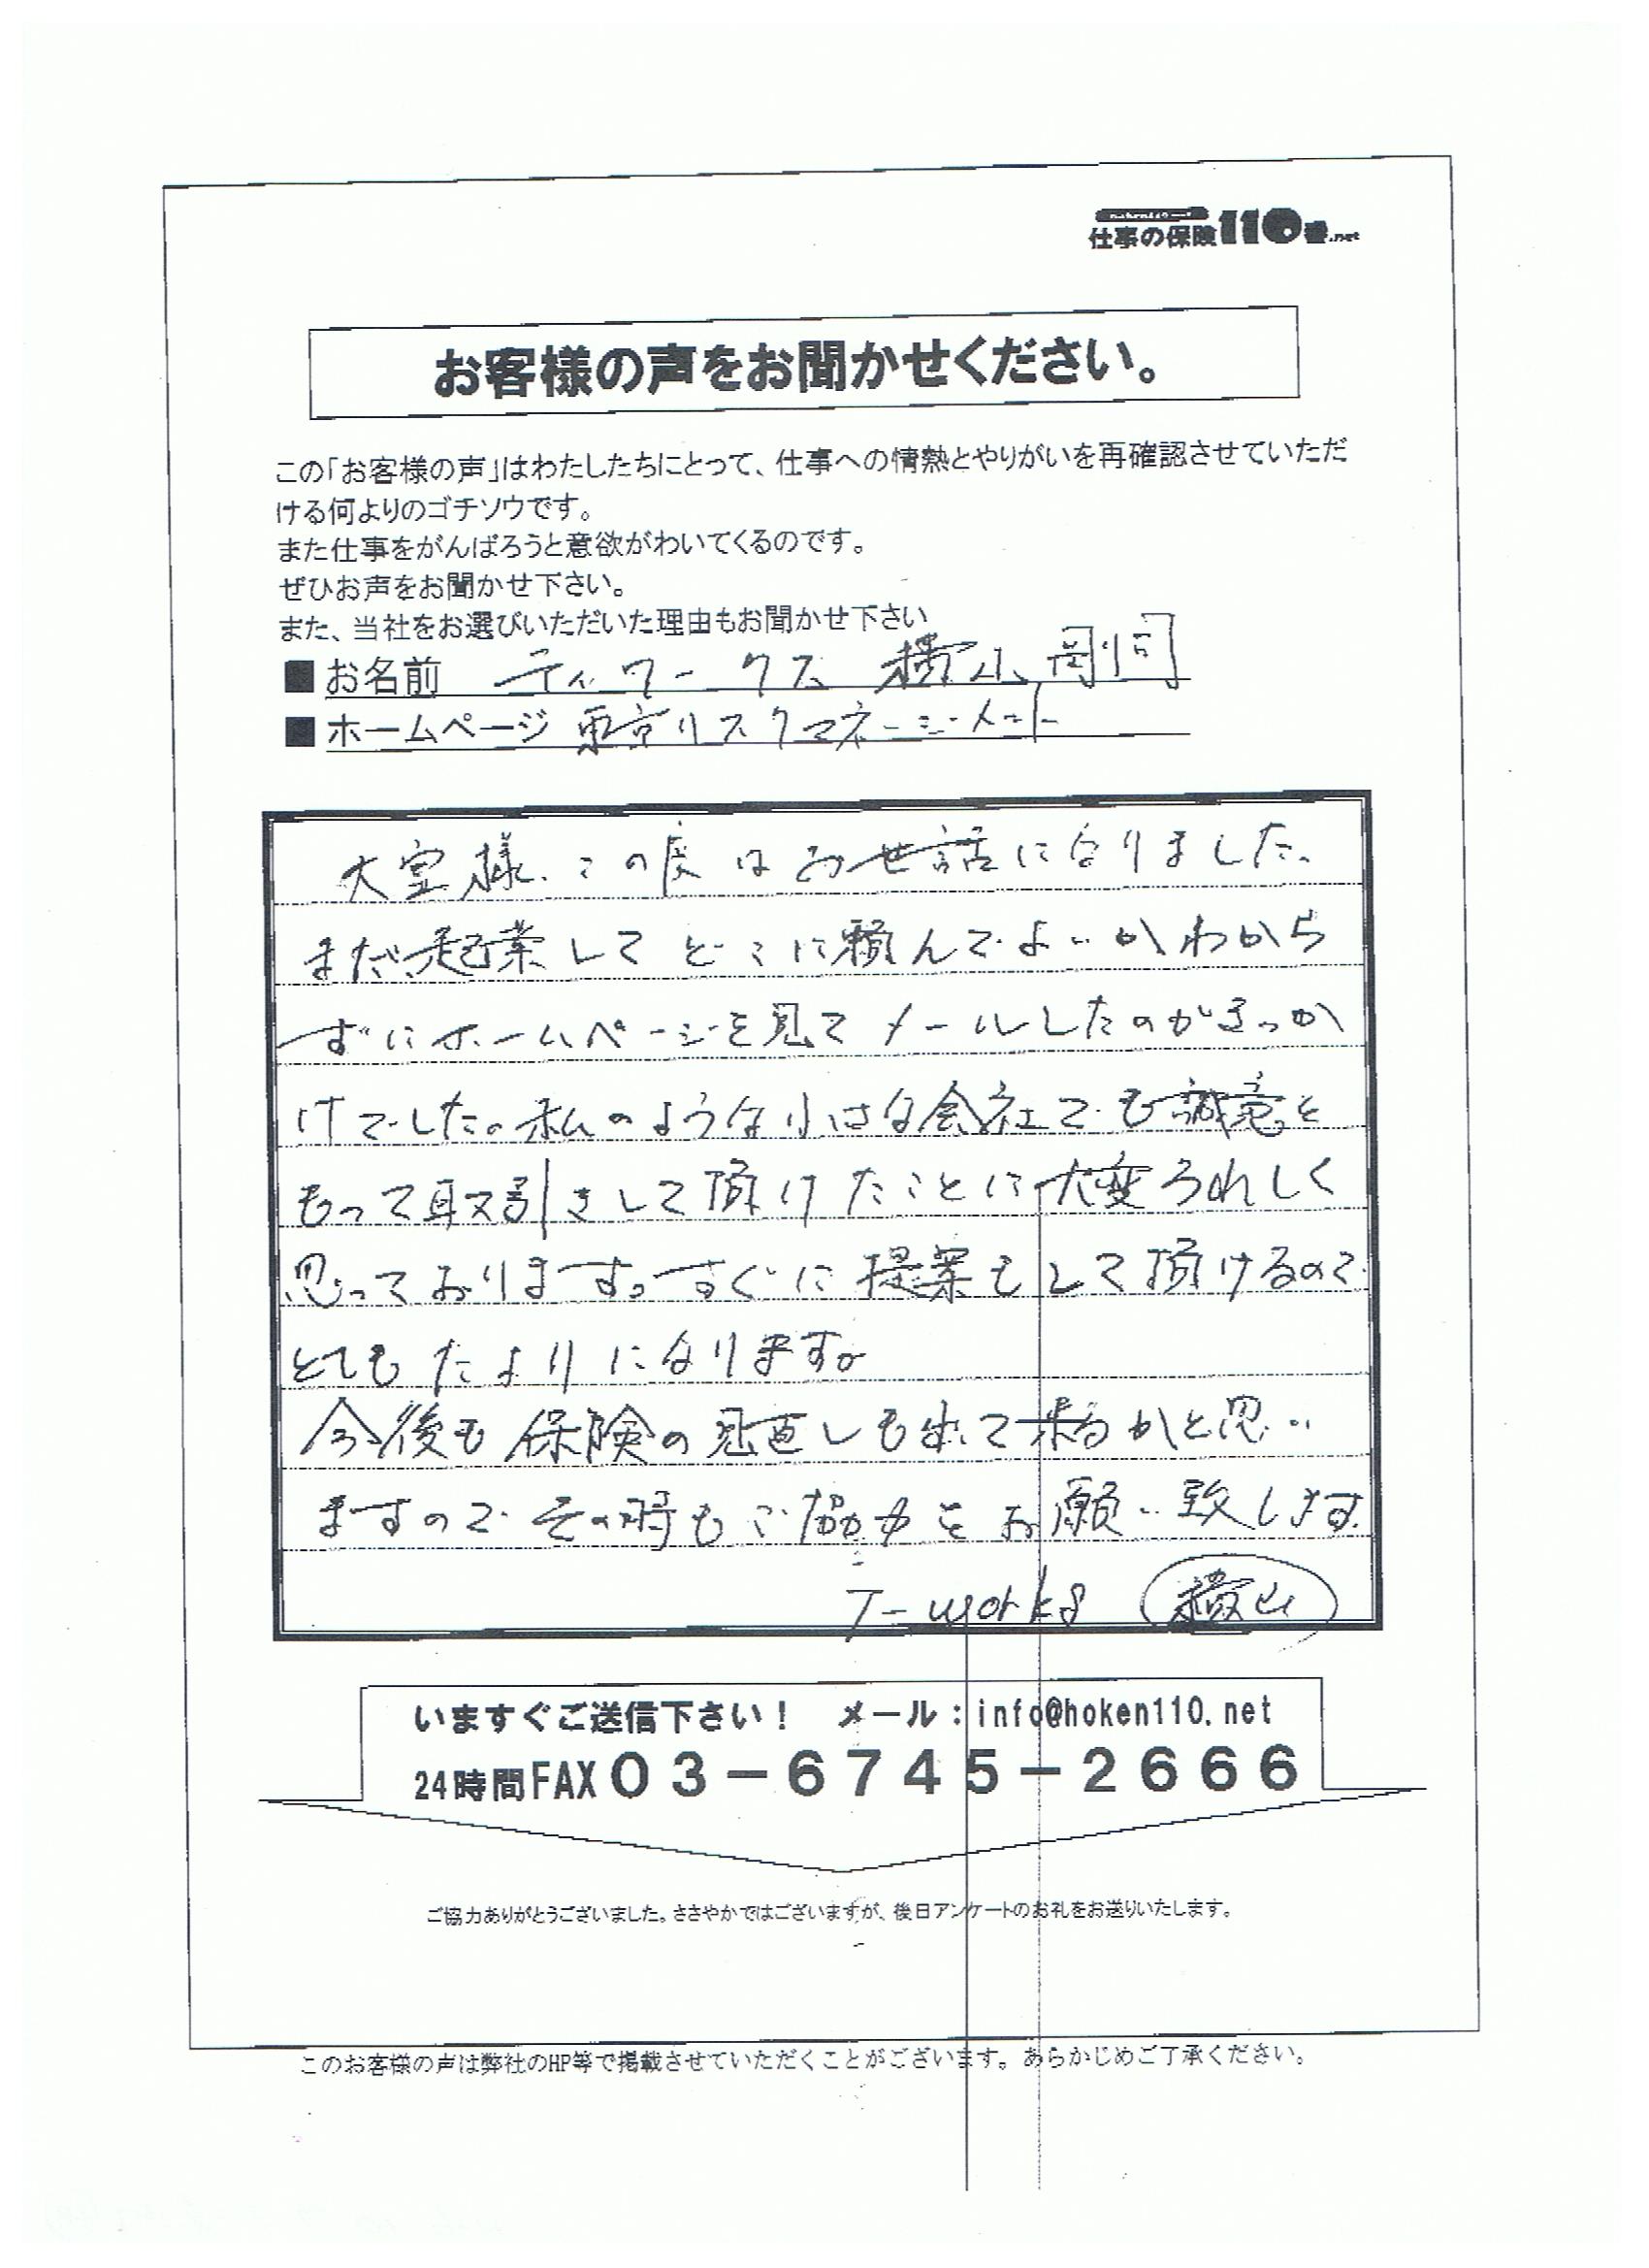 仕事の保険110番.net
お客様の声をお聞かせください。
この「お客様の声」はわたしたちにとって、仕事への情熱とやりがいを再確認させていただ
ける何よりのゴチソウです。
また仕事をがんばろうと意欲がわいてくるのです。
ぜひお声をお聞かせ下さい。
また、当社をお選びいただいた理由もお聞かせ下さい
■お名前 ティーワークス 横山 剛司
■ホームページ 東京リスクマネージメント
大室様、この度はお世話になりました。
まだ、起業してどこに頼んでよいかわから
ずにホームページを見てメールしたのがきっか
けでした。私のような小さな会社でも誠意を
もって取引きして頂けたことに大変うれしく
思っております。すぐに提案もして頂けるので
とてもたよりになります。
今後も保険の見直しも出て来るかと思い
ますのでその時もご協力をお願い致します
T-works 横山
いますぐご送信下さい! メール:info@hoken110.net
24時間FAX03-6745-2666
ご協力ありがとうございました。ささやかではございますが、後日アンケートのお礼をお送りいたします。
このお客様の声は弊社のHP等で掲載させていただくことがございます。あらかじめご了承ください。